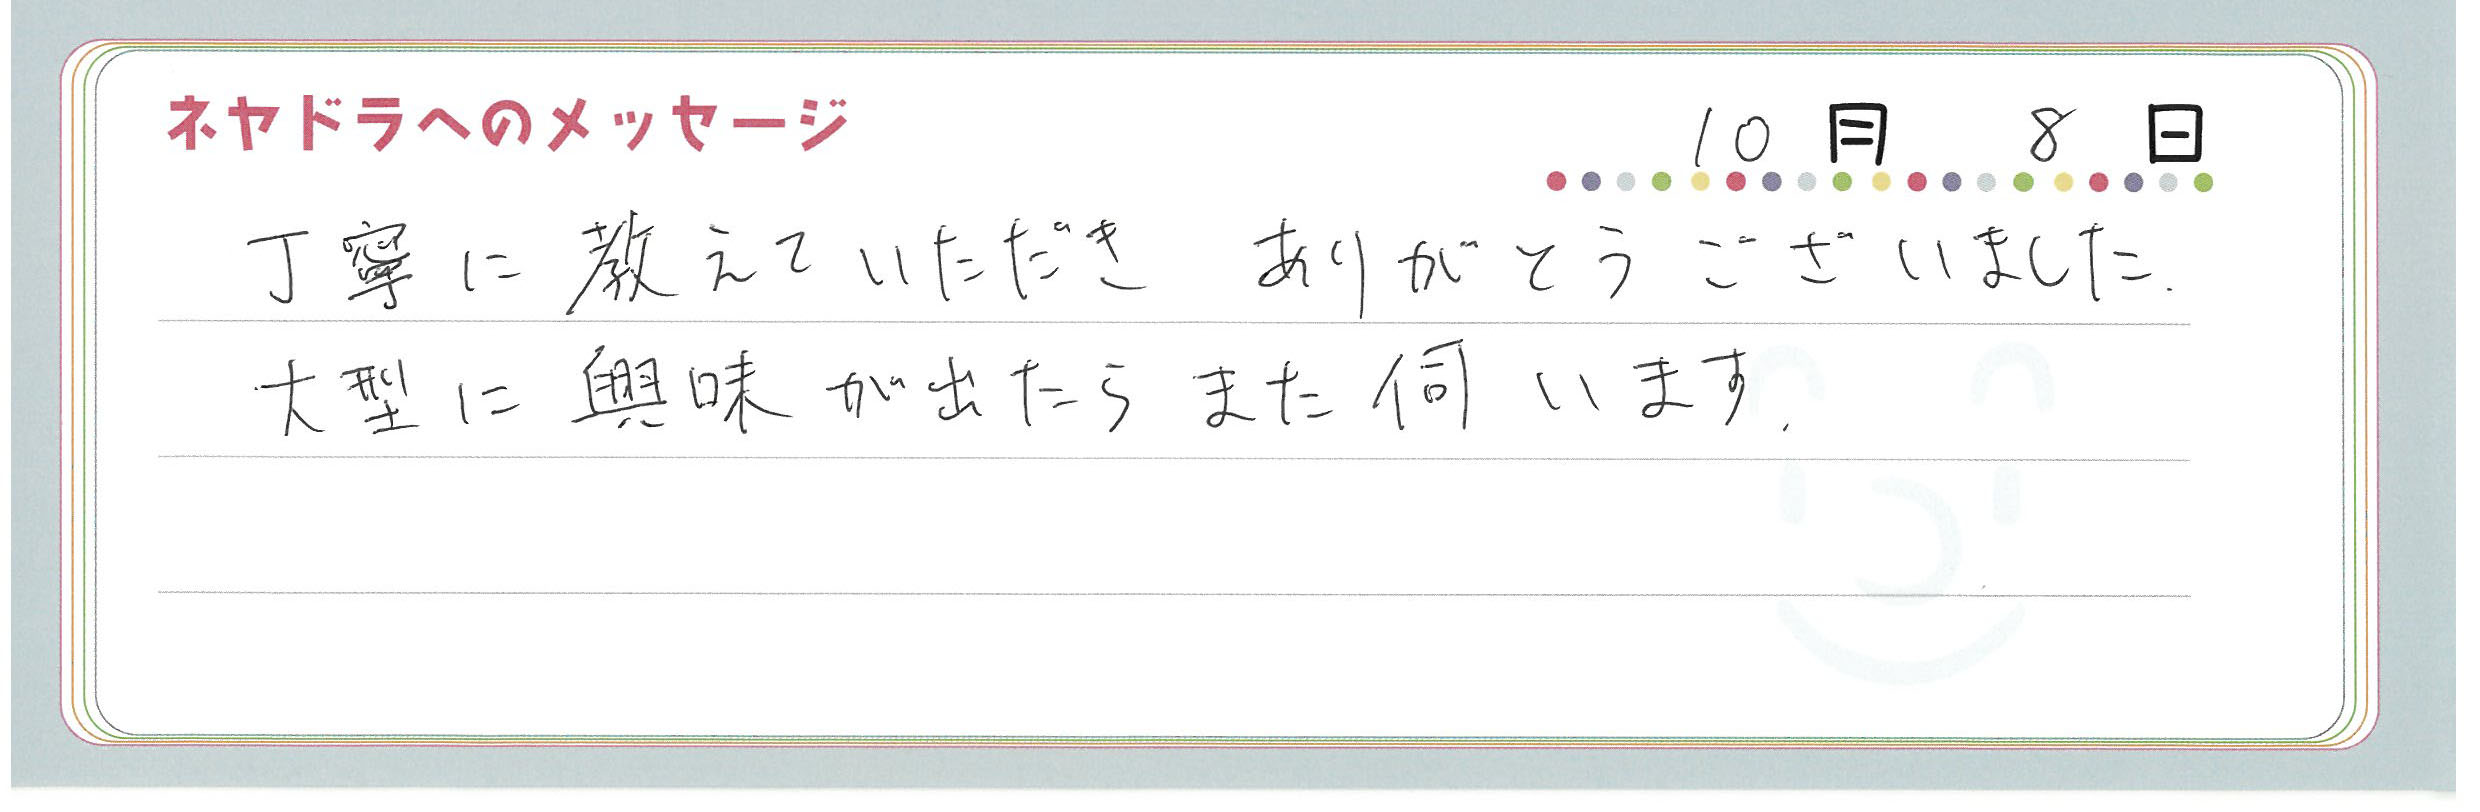 ネヤドラへのメッセージ
10月 8日
丁寧に教えていただき ありがとうございました.
大型に興味が出たらまた伺います.